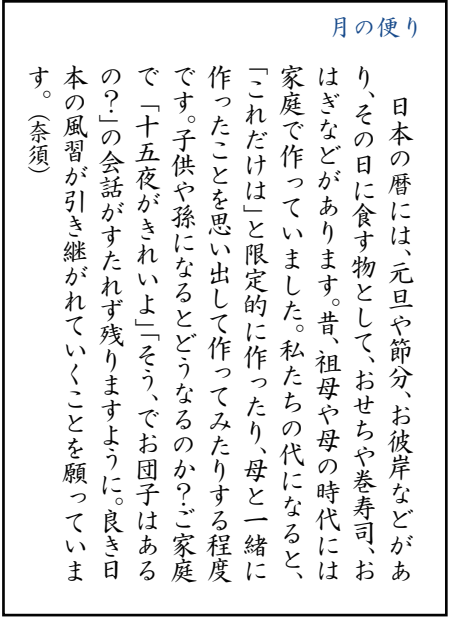 月の便り
日本の暦には、元旦や節分、お彼岸などがあ
り、その日に食す物として、おせちや巻寿司、お
はぎなどがあります。昔、祖母や母の時代には
家庭で作っていました。私たちの代になると、
「これだけは」と限定的に作ったり、母と一緒に
作ったことを思い出して作ってみたりする程度
です。子供や孫になるとどうなるのか？ご家庭
で「十五夜がきれいよ」「そう、でお団子はある
の？」の会話がすたれず残りますように。良き日
本の風習が引き継がれていくことを願っていま
す。（奈須）